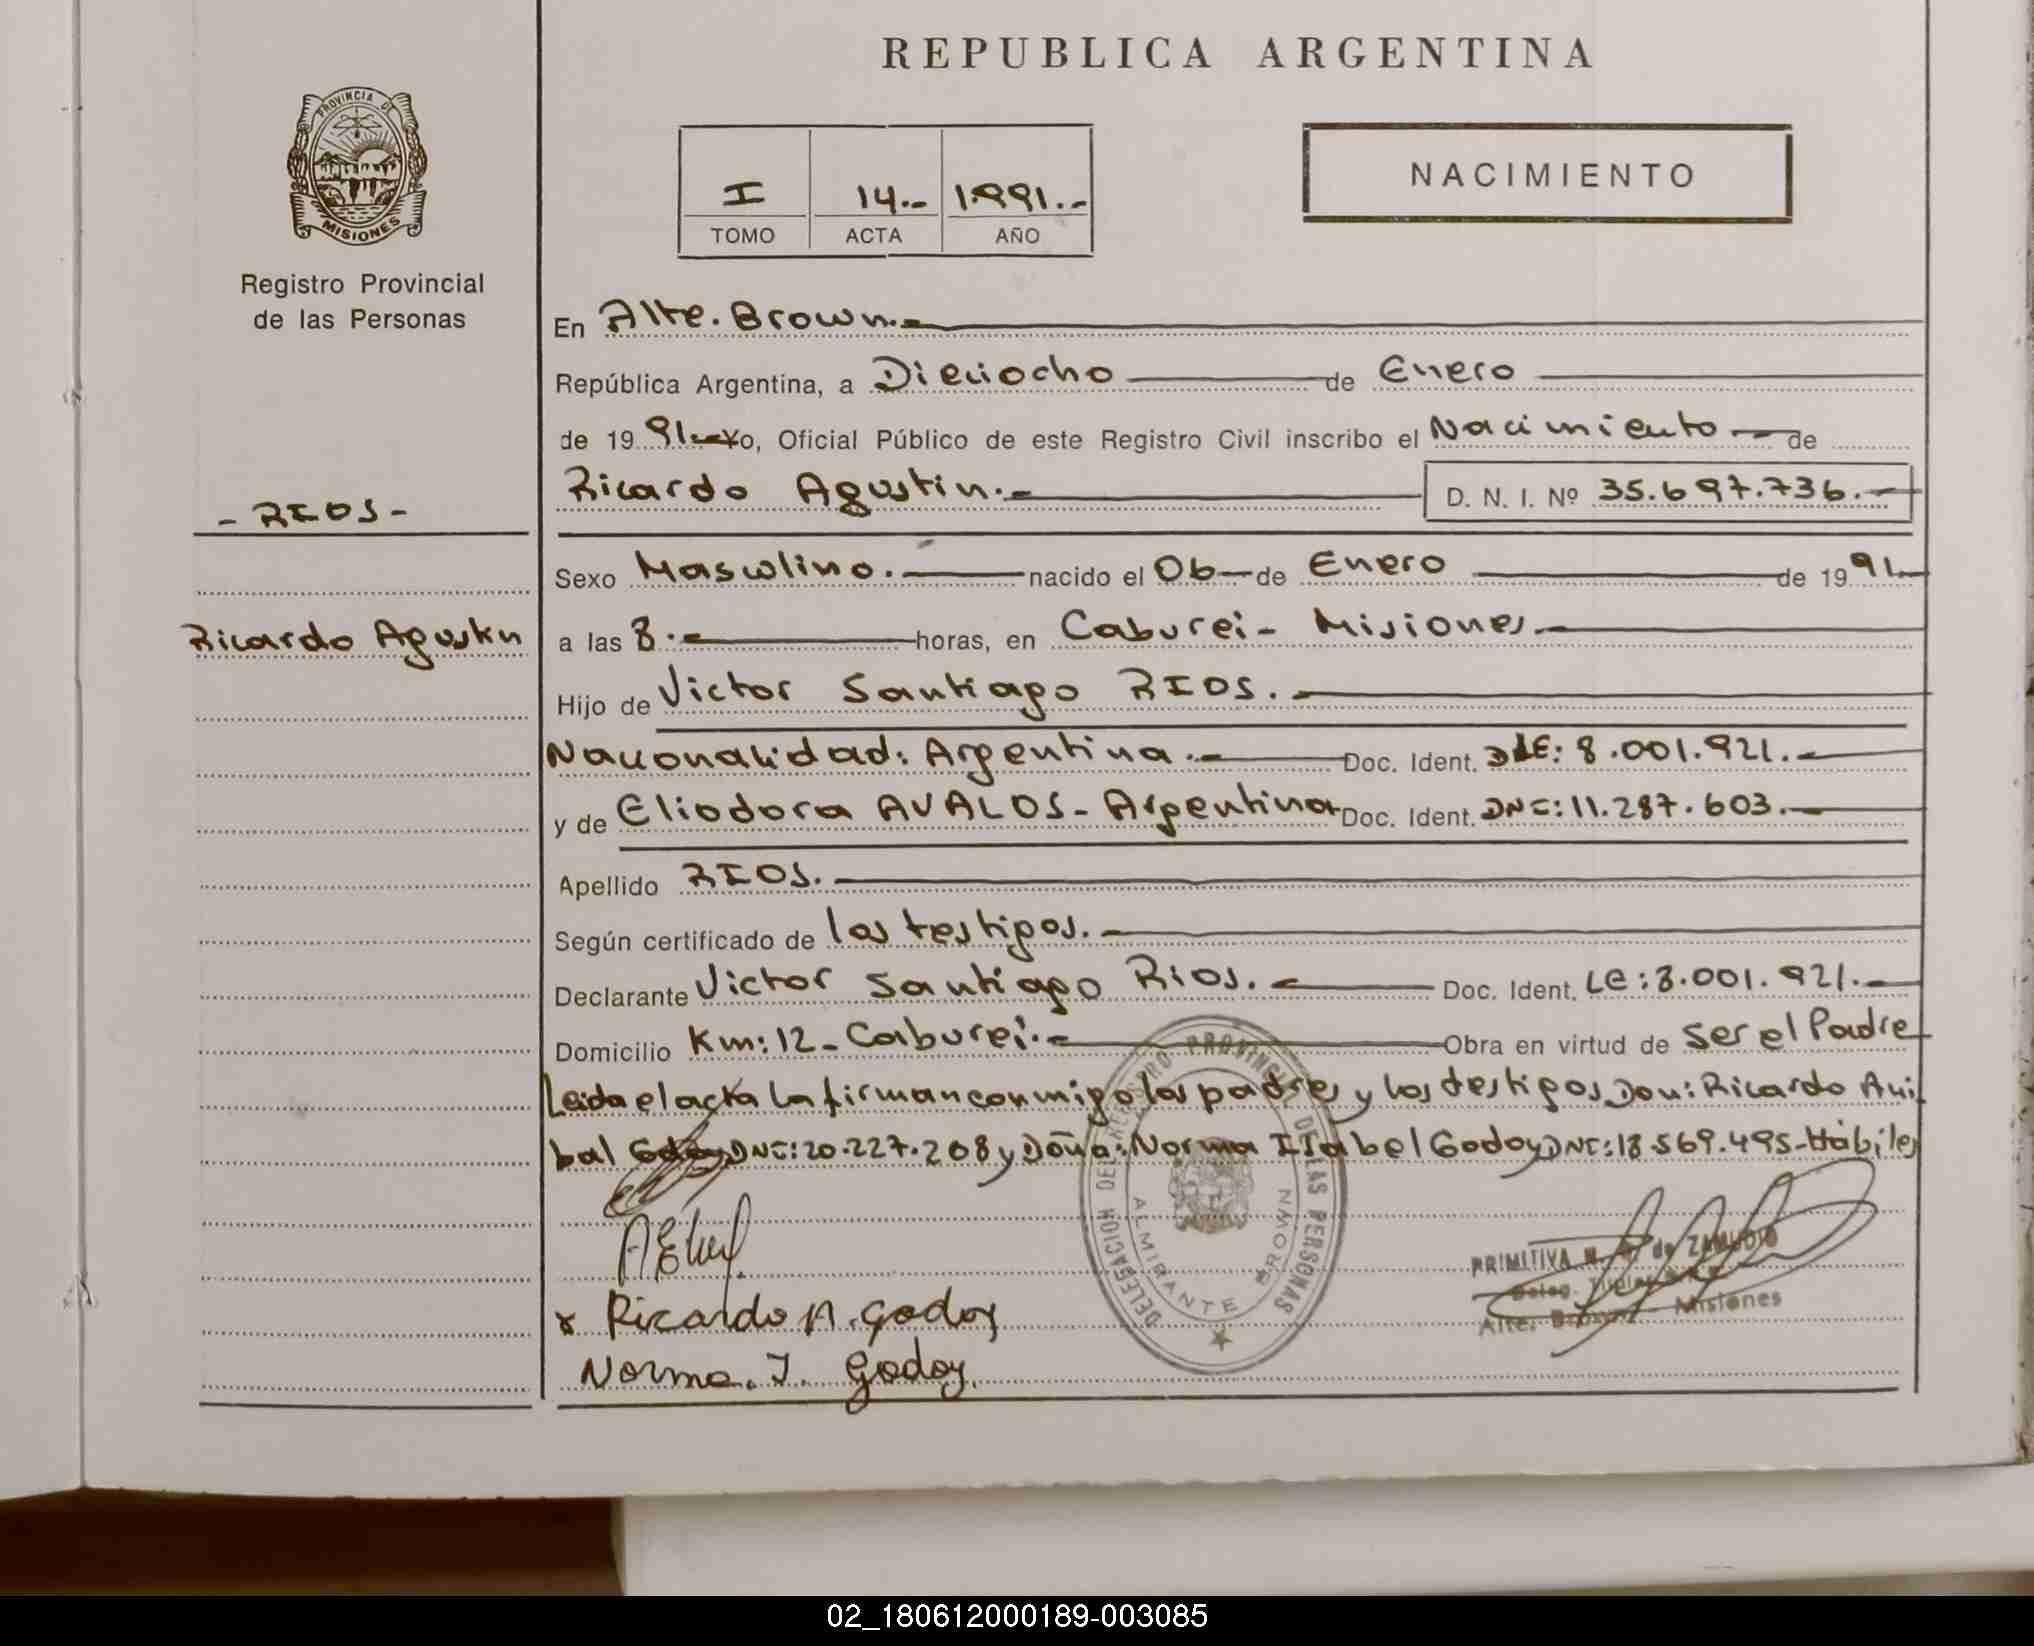 REPUBLICA ARGENTINA
PROVINCIA DE
MISIONES
Registro Provincial
de las Personas
I 14.- 1.991.-
TOMO ACTA AÑO
NACIMIENTO
En Alte. Brown.-
República Argentina, a Dieciocho de Enero
de 19 91.- Yo, Oficial Público de este Registro Civil inscribo el Nacimiento de
Ricardo Agustin.- D. N. I. Nº 35.697.736.-
- RIOS -
Sexo Masculino. nacido el 06 de Enero de 19 91.-
Ricardo Agustin
a las 8.- horas, en Caburei - Misiones.-
Hijo de Victor Santiago RIOS.-
Nacionalidad: Argentina.- Doc. Ident. LE: 8.001.921.-
y de Eliodora AVALOS - Argentina Doc. Ident. DNI: 11.287.603.-
Apellido RIOS.-
Según certificado de los testigos.-
Declarante Victor Santiago Rios.- Doc. Ident. LE: 8.001.921.-
Domicilio Km: 12 - Caburei.- Obra en virtud de ser el Padre
Leida el acta la firman conmigo los padres y los testigos Don: Ricardo Ani
bal Godoy DNI: 20.227.208 y Doña: Norma Isabel Godoy DNI: 18.569.495 - Hábiles
Ricardo A. Godoy
Norma. I. Godoy.
DELEGACION DEL REGISTRO PROVINCIAL DE LAS PERSONAS
ALMIRANTE BROWN
PRIMITIVA de ZAMUDIO
Deleg. Titular
Alte. Brown - Misiones
02_180612000189-003085